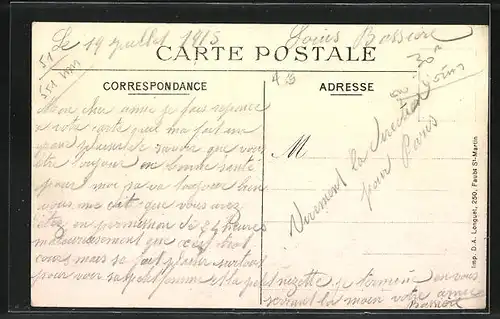 Le 19 juillet 1915 Louis Bassière
CARTE POSTALE
51
CORRESPONDANCE
ADRESSE
Mon cher amie je fais reponce
a votre carte qui ma fait un
gran plaisire de savoir que vous
ete toujour en bonne santé
pour moi sa va toujour bien
vous me dit que vous avez
étez en permission de 24 heures
maleureusement que c'est trot
cours mais sa fait plaisir surtout
pour voir sa petit femme et la petit suzette je termine en vous
serrant la main votre amie
M
Vivement la direction
pour Paris
Imp. D.A. Longuet, 250, Faubg St-Martin